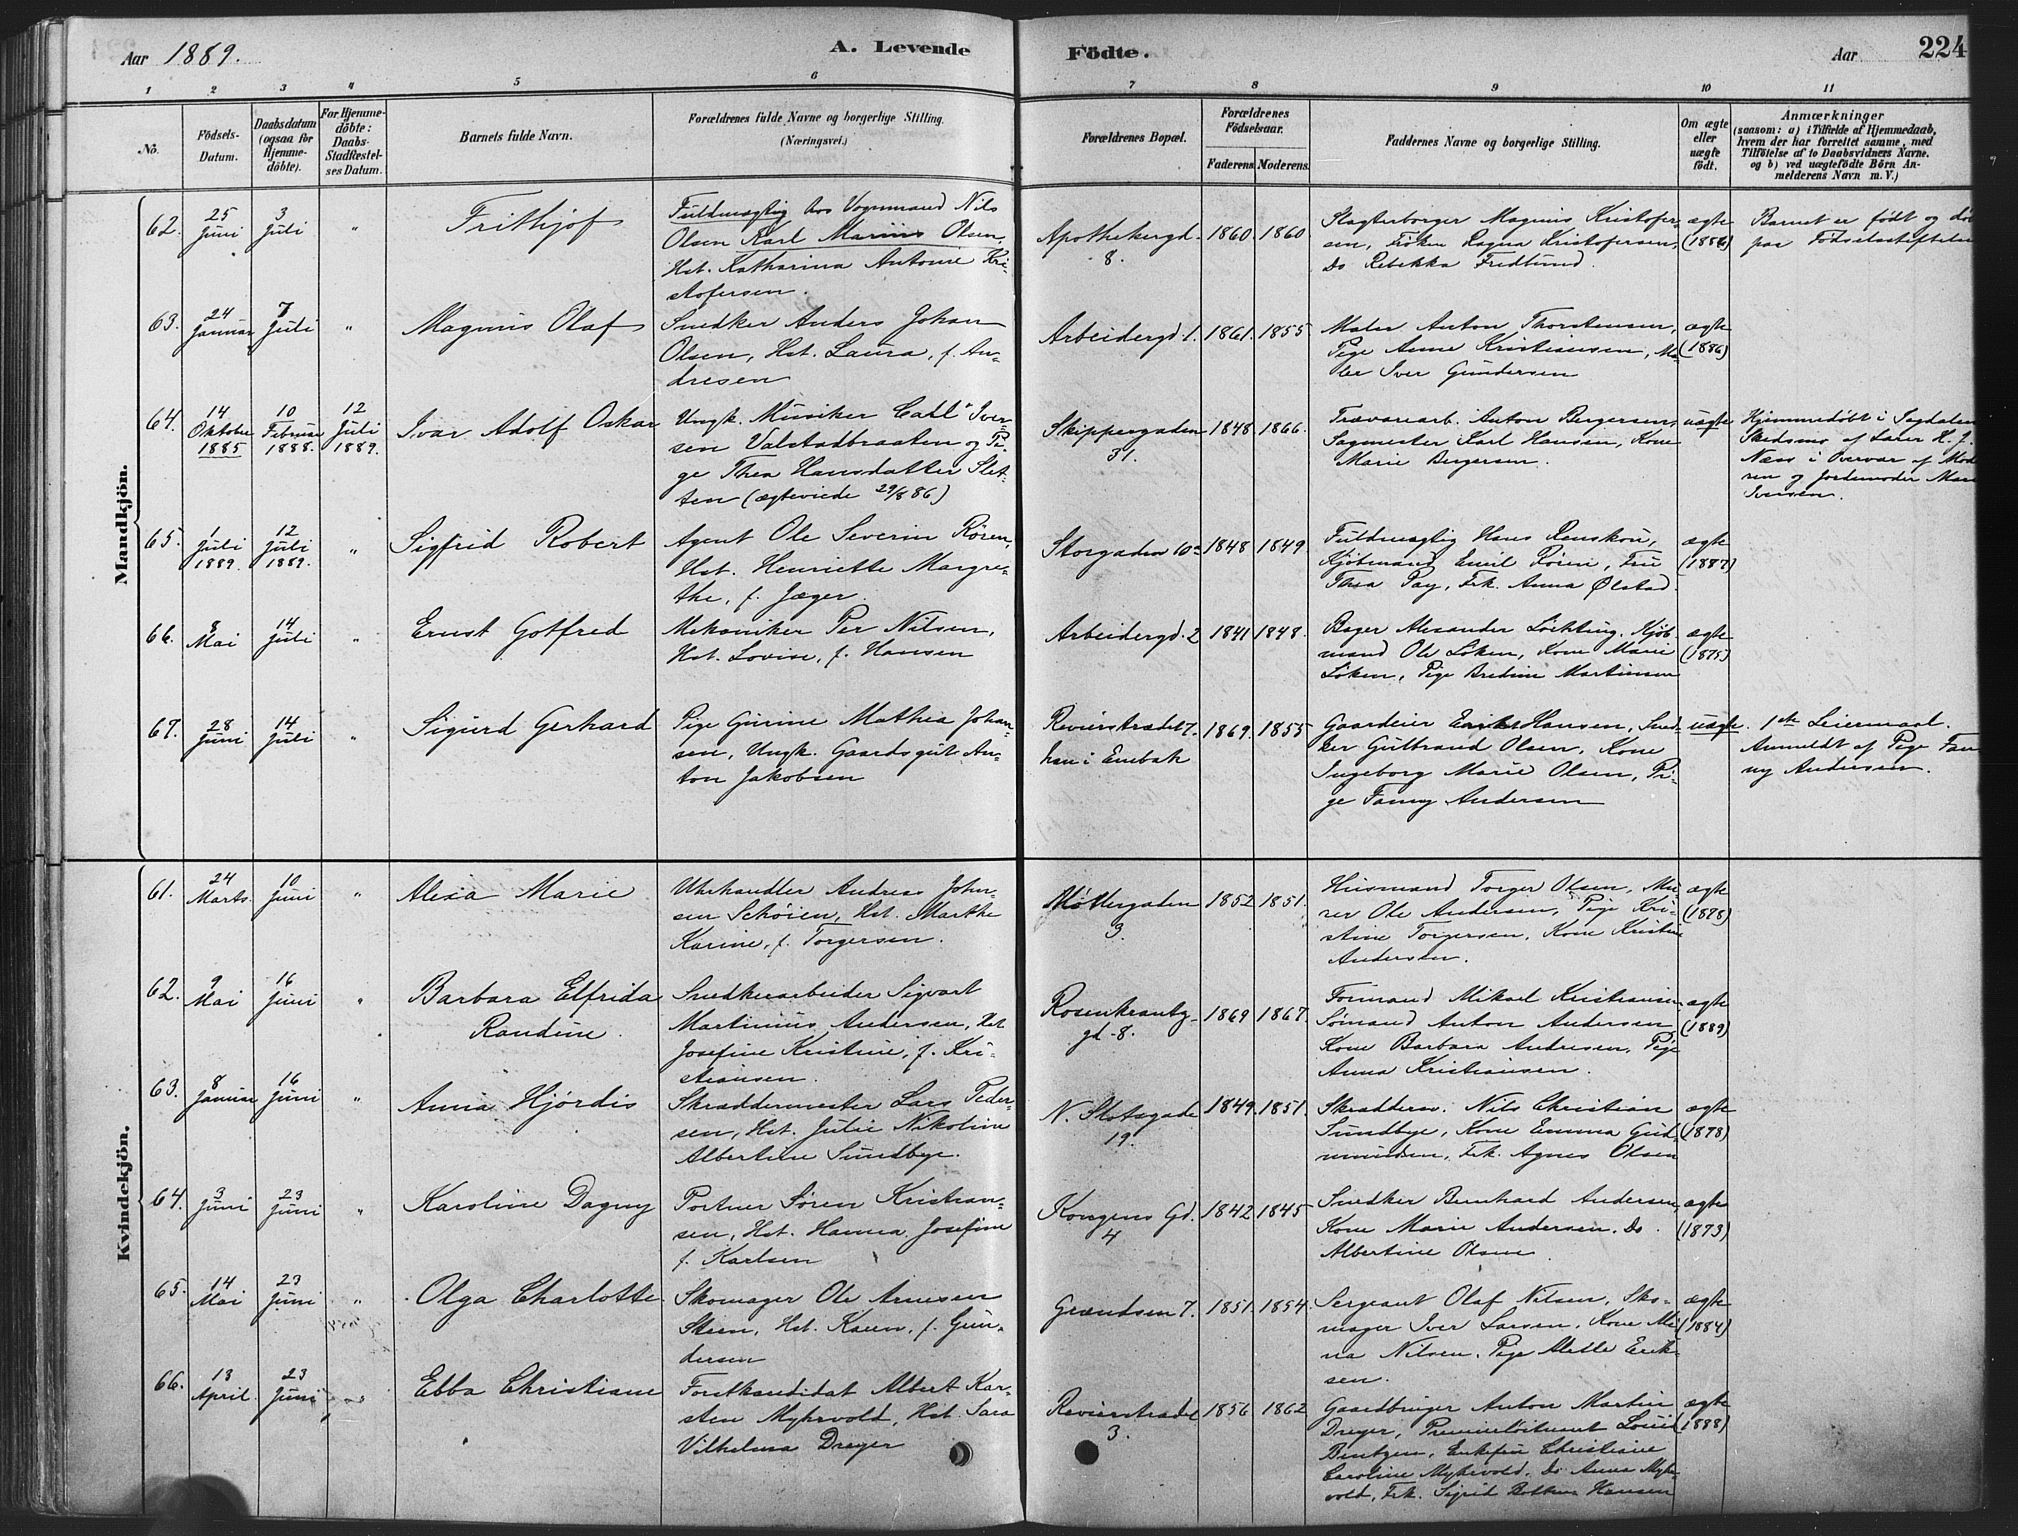 Aar 1889.
A. Levende
Födte.
Aar
224
1
2
3
4
5
6
7
8
9
10
11
No.
Födsels-
Datum.
Daabsdatum
(ogsaa för
Hjemme-
döbte).
For Hjemme-
döbte:
Daabs-
Stadfæstel-
ses Datum.
Barnets fulde Navn.
Forældrenes fulde Navne og borgerlige Stilling.
(Næringsvei.)
Forældrenes Bopæl.
Forældrenes
Födselsaar.
Faderens. Moderens.
Faddernes Navne og borgerlige Stilling.
Om ægte
eller
uægte
födt.
Anmærkninger
(saasom: a) i Tilfælde af Hjemmedaab,
hvem der har forrettet samme, med
Tilföielse af to Daabsvidners Navne.
og b) ved uægtefödte Börn An-
melderens Navn m. V.)
Mandkjön.
62.
25
Juni
3
Juli
"
Frithjof
Fuldmægtig hos Vognmand Nils
Olsen Karl Marius Olsen,
Hst. Katharina Antonie Kri-
stofersen.
Apothekergd.
8.
1860.
1860
Slagterborger Magnus Kristofer-
sen, Frøken Ragna Kristofersen,
Do Rebekka Fredlund.
ægte
(1886)
Barnet er født og
paa Fødselsstiftelse
63.
24
Januar
7
Juli
"
Magnus Olaf
Snedker Anders Johan
Olsen, Hst. Laura, f. An-
dresen
Arbeidergd. 1.
1861.
1855
Maler Anton Thorstensen,
Pige Anne Kristiansen, Ma-
ler Iver Gundersen
ægte
(1886)
64.
14
Oktober
1885
10
Februar
1888.
12
Juli
1889.
Ivar Adolf Oskar
Ungk. Musiker Carl Iver-
sen Valstadbraaten og Pi-
ge Thea Hansdatter Slet-
ten (ægteviede 29/8 86)
Skippergaden
31.
1848
1866.
Trævarearb. Anton Bergersen,
Sagmester Karl Hansen, Kone
Marie Bergersen.
uægte
Hjemmedøbt i Sagdalen
Skedsmo af Lærer H. J.
Næss i Overvær af Mod
ren og Jordemoder
Iversen.
65.
1
Juli
1889.
12
Juli
1889.
"
Sigfrid Robert
Agent Ole Severin Røren,
Hst. Henriette Margre-
the, f. Jæger.
Storgaden 10a
1848
1849
Fuldmægtig Hans Renskou,
Kjøbmand Emil Røren, Fru
Thea Pay, Frk. Anna Ølstad.
ægte
(1887)
66.
8
Mai
14
Juli
"
Ernst Gotfred
Mekaniker Per Nilsen,
Hst. Lovise, f. Hansen
Arbeidergd. 2
1841
1848.
Bager Alexander Kjøb-
mand Ole Løken, Kone Marie
Løken, Pige Bredine Martinsen
ægte
(1875)
67.
28
Juni
14
Juli
"
Sigurd Gerhard
Pige Gurine Mathea Johan-
sen, Ungk. Gaardsgut An-
ton Jakobsen
Revierstrædet 7.
han i Enebak
1869.
1855
Gaardeier Erik Hansen, Sned-
ker Gulbrand Olsen, Kone
Ingeborg Marie Olsen, Pi-
ge Fanny Andersen
uægte
1ste Leiermaal.
Anmeldt af Pige Fan
ny Andersen.
Kvindekjön.
61.
24
Marts.
10
Juni
"
Alexia Marie
Uhrhandler Andreas John-
sen Schøien, Hst. Marthe
Karine, f. Torgersen.
Møllergaden
3.
1852
1851.
Husmand Torger Olsen, Mu-
rer Ole Andersen, Pige Kri-
stine Torgersen, Kone Kristine
Andersen.
ægte
(1878)
62.
9
Mai
16
Juni
"
Barbara Elfrida
Randine.
Snedkerarbeider Sigvart
Martinius Andersen, Hst.
Josefine Kristine, f. Kri-
stiansen.
Rosenkrantz-
gd. 8.
1869
1867.
Formand Mikael Kristiansen
Sømand Anton Andersen
Kone Barbara Andresen, Pige
Anna Kristiansen.
ægte
(1889)
63.
8
Januar
16
Juni
"
Anna Hjørdis
Skræddermester Lars Peder-
sen, Hst. Julie Nikoline
Albertine Sundbye.
N. Slotsgade
19.
1849.
1851.
Skrædderm. Nils Christian
Sundbye, Kone Emma Gud-
mundsen, Frk. Agnes Olsen
ægte
(1878)
64.
3
Juni
23
Juni
"
Karoline Dagny
Portner Søren Kristian-
sen, Hst. Hanna Josefine
f. Karlsen
Kongens Gd.
4
1842
1845
Snedker Bernhard Andersen
Kone Marie Andersen. Do
Albertine Olsen
ægte
(1873)
65.
14
Mai
23
Juni
"
Olga Charlotte
Skomager Ole Arnesen
Steen, Hst. Karen, f. Gun-
dersen
Grændsen 7.
1851.
1854
Sergeant Olaf Nilsen, Sko-
mager Iver Larsen, Kone Mi-
na Nilsen, Pige Mette Erik-
sen.
ægte
(1884)
66.
13
April
23
Juni
"
Ebba Christiane
Forstkandidat Albert Kar-
sten Myhrvold, Hst. Sara
Vilhelma Dreyer
Revierstrædet
3.
1856
1862
Gaardbruger Anton Martin
Dreyer, Premierløitnant Louis
Bentzen, Enkefru Christiane
Caroline Myhrvold. Do Anna Myhr-
vold, Frk. Sigrid Hansen
ægte
(1888)